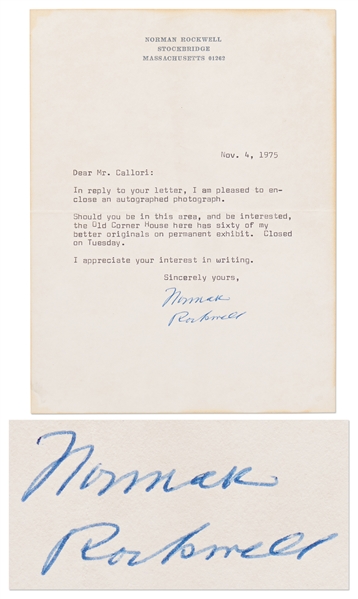 NORMAN ROCKWELL
STOCKBRIDGE
MASSACHUSETTS 01262
Nov. 4, 1975
Dear Mr. Callori:
In reply to your letter, I am pleased to en-
close an autographed photograph.
Should you be in this area, and be interested,
the Old Corner House here has sixty of my
better originals on permanent exhibit. Closed
on Tuesday.
I appreciate your interest in writing.
Sincerely yours,
Norman
Rockwell
Norman
Rockwell